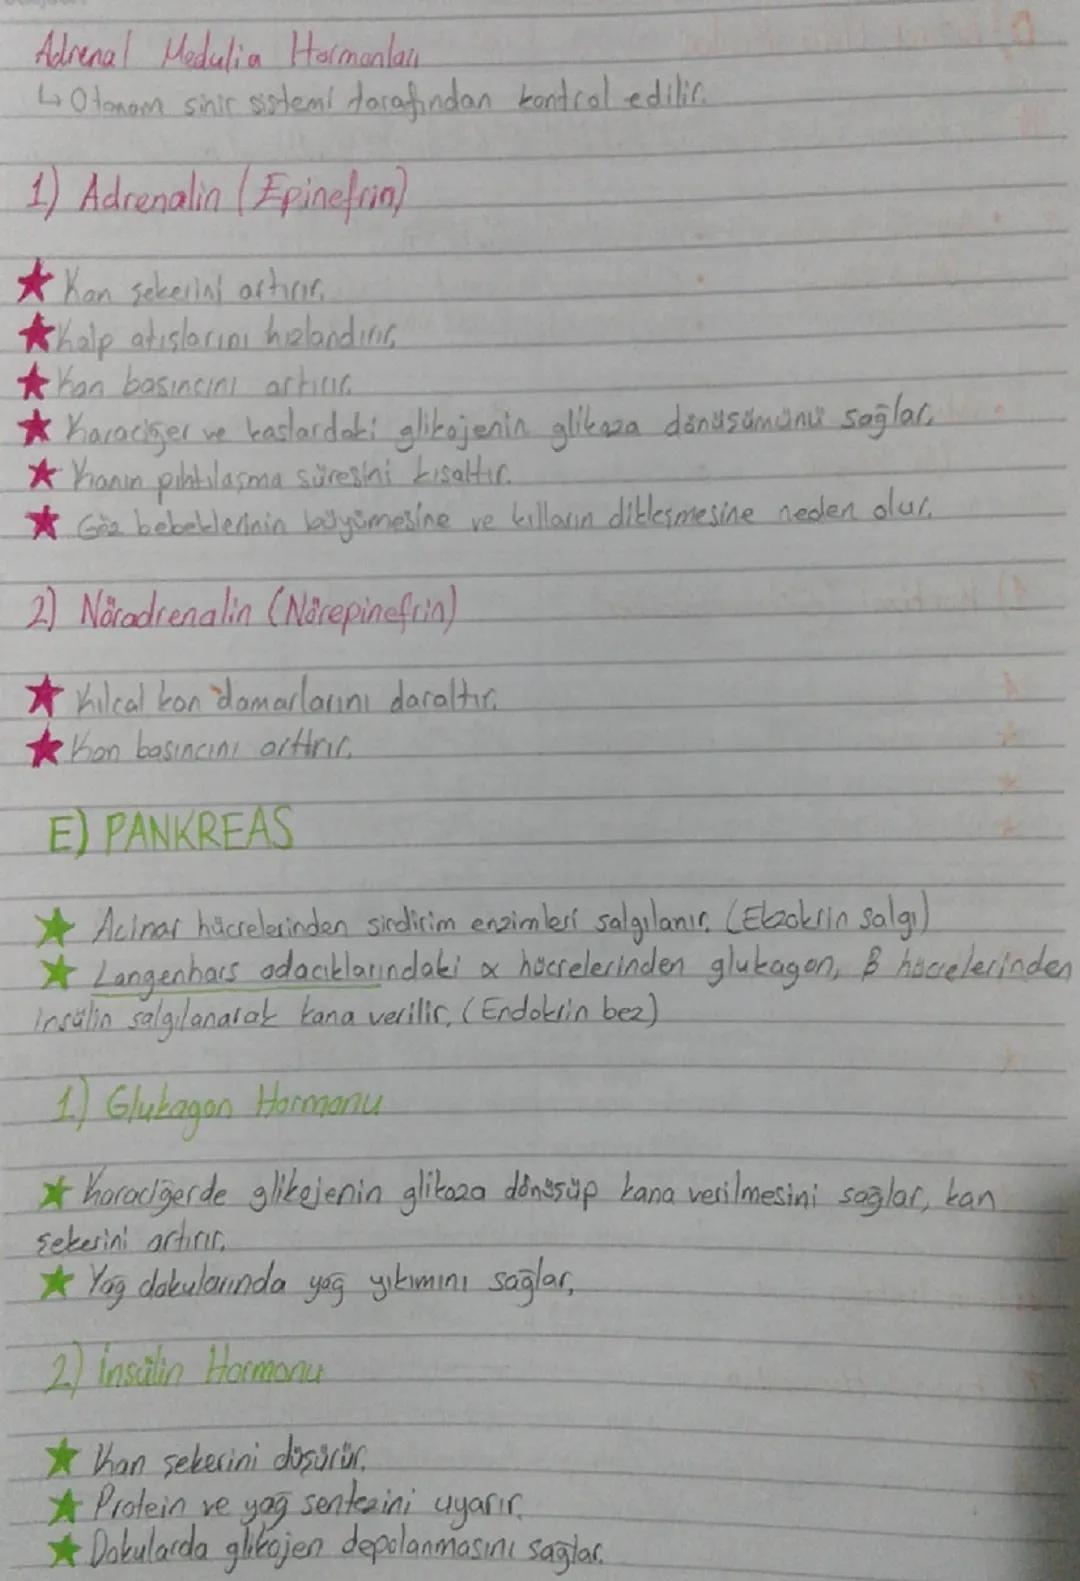 Adrenal Medulia Hormonları
↳ Otonom sinir sistemi tarafından kontrol edilir.
1) Adrenalin (Epinefrin)
★ Kan şekerini artırır.
★ Kalp atışlarını hızlandırır.
★ Kan basıncını artırır.
★ Karaciğer ve kaslardaki glikojenin glikoza dönüşümünü sağlar.
★ Kanın pıhtılaşma süresini kısaltır.
★ Göz bebeklerinin büyümesine ve kılların dikleşmesine neden olur.
2) Nöradrenalin (Nörepinefrin)
★ Kılcal kan damarlarını daraltır.
★ Kan basıncını arttrır.
E) PANKREAS
★ Acinar hücrelerinden sindirim enzimleri salgılanır. (Ekzokrin salgı)
★ Langenhars adacıklarındaki α hücrelerinden glukagon, β hücrelerinden
insülin salgılanarak kana verilir. (Endokrin bez)
1) Glukagon Hormonu
★ Karaciğerde glikojenin glikoza dönüşüp kana verilmesini sağlar, kan
şekerini artırır.
★ Yağ dokularında yağ yıkımını sağlar.
2) İnsülin Hormonu
★ Kan şekerini düşürür.
★ Protein ve yağ sentezini uyarır.
★ Dokularda glikojen depolanmasını sağlar.